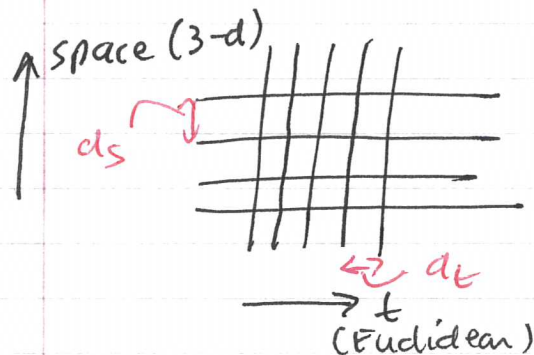 space (3-d)
ds
dt
t
(Euclidean)